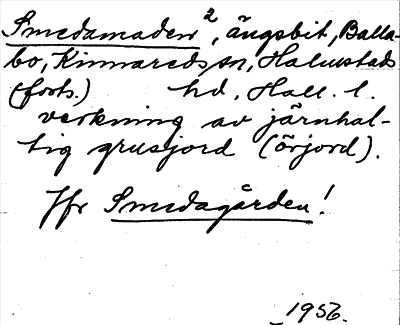 Smedamaden², ängsbit, Balla-
bo, Kinnareds sn, Halmstads
(forts.) hd, Hall. l.
verkning av järnhal-
tig grusjord (örjord).
Jfr Smedagården!
1956.